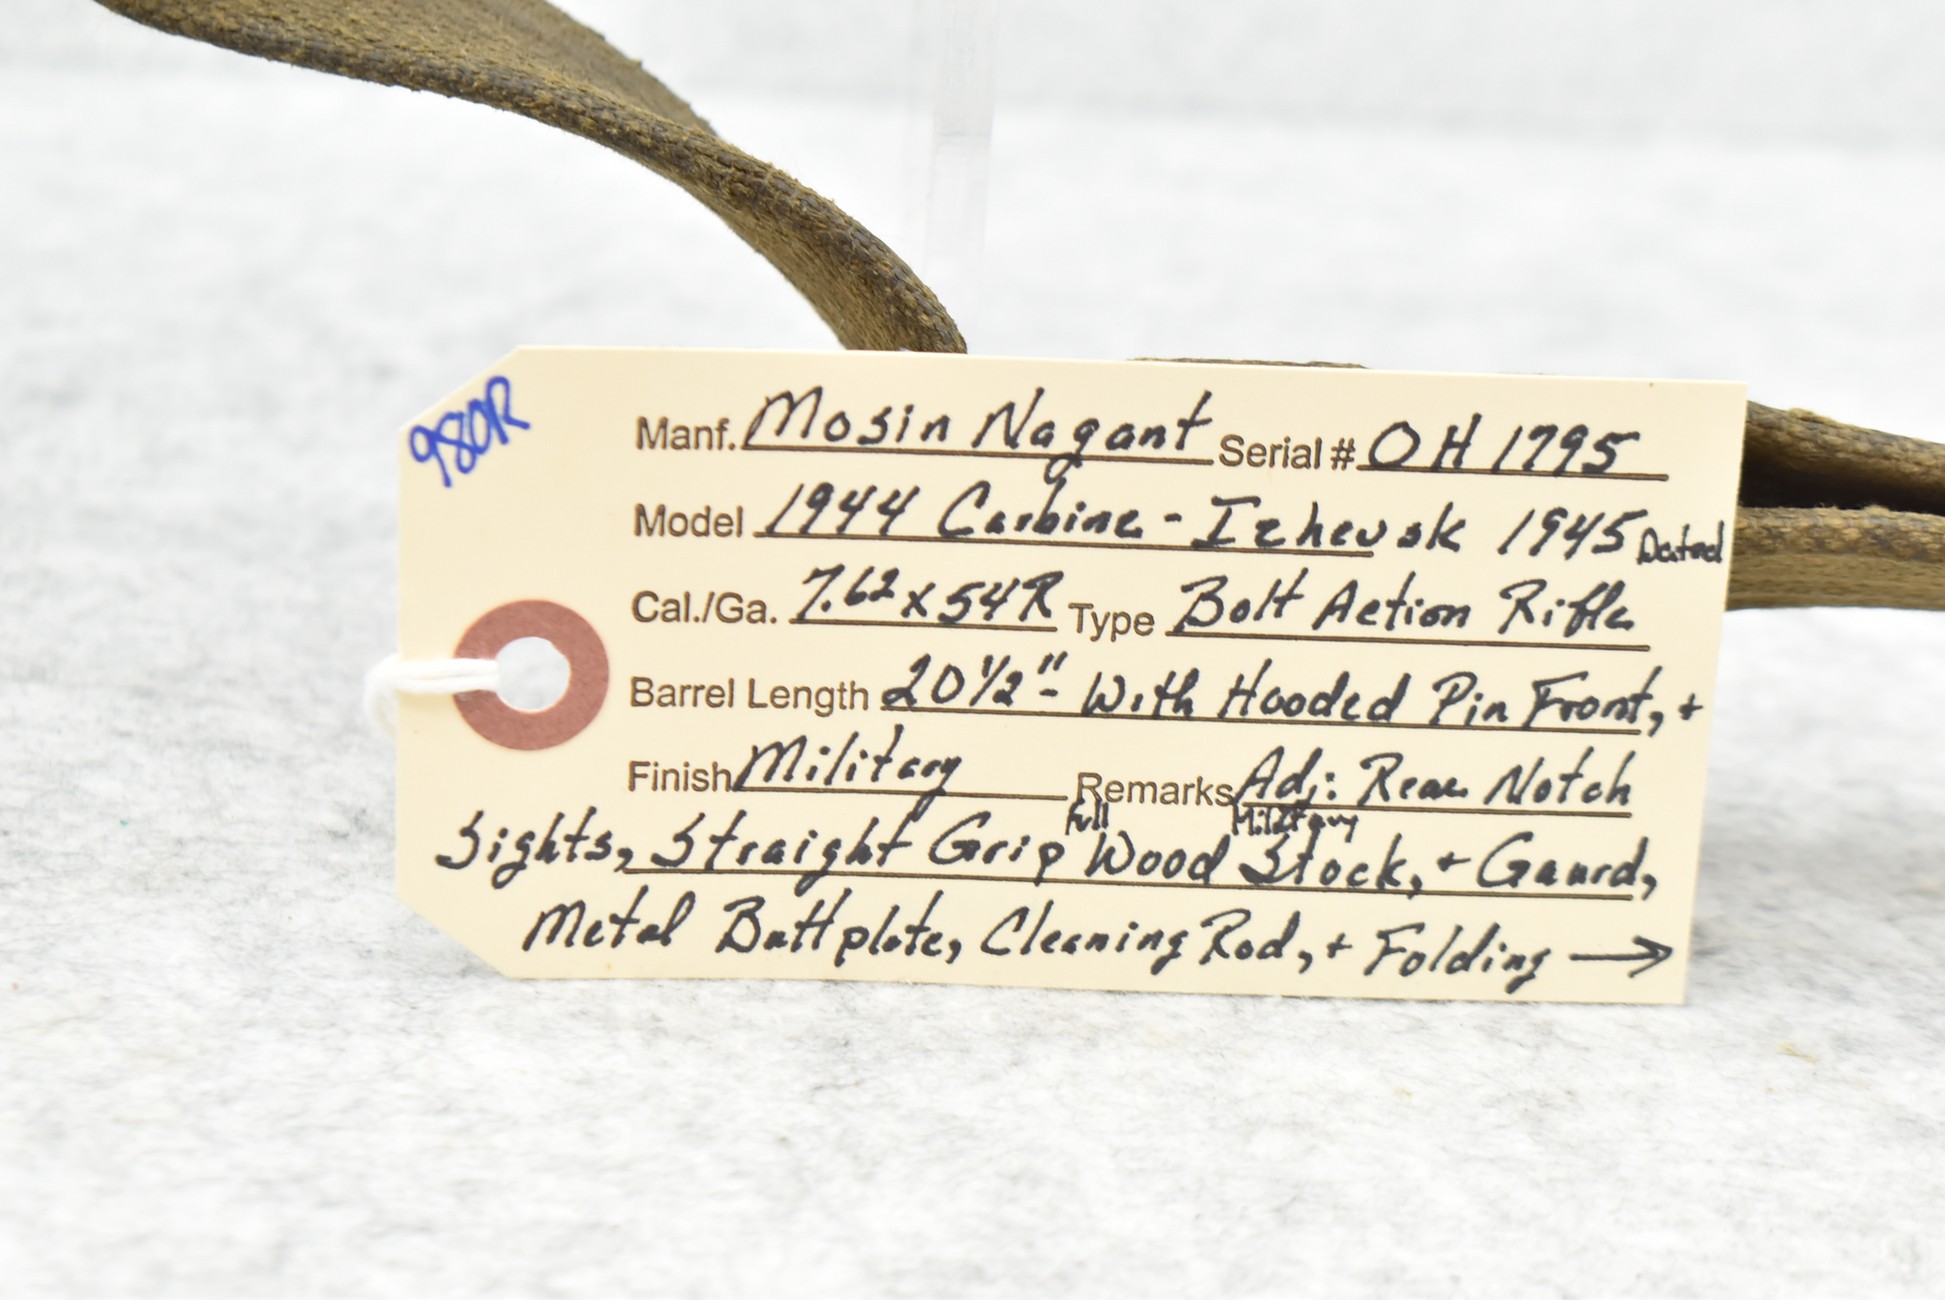 980R
Manf. Mosin Nagant Serial # OH 1795
Model 1944 Carbine - Izhevsk 1945 Dated
Cal./Ga. 7.62x54R Type Bolt Action Rifle
Barrel Length 20 1/2" - With Hooded Pin Front, +
Finish Military Remarks Adj: Rear Notch
Full Military
Sights, Straight Grip Wood Stock, + Gaurd,
Metal Buttplate, Cleaning Rod, + Folding →